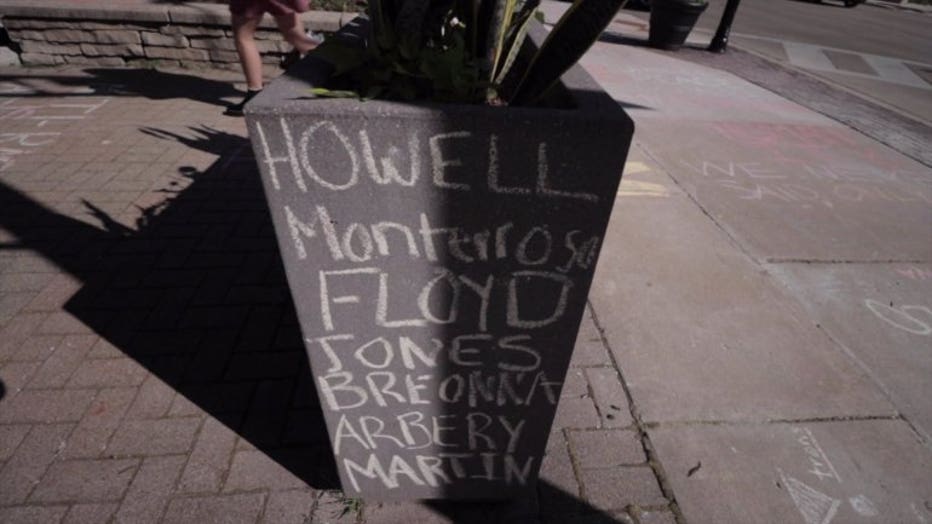 HOWELL
Monterrosa
FLOYD
JONES
BREONNA
ARBERY
MARTIN
WE